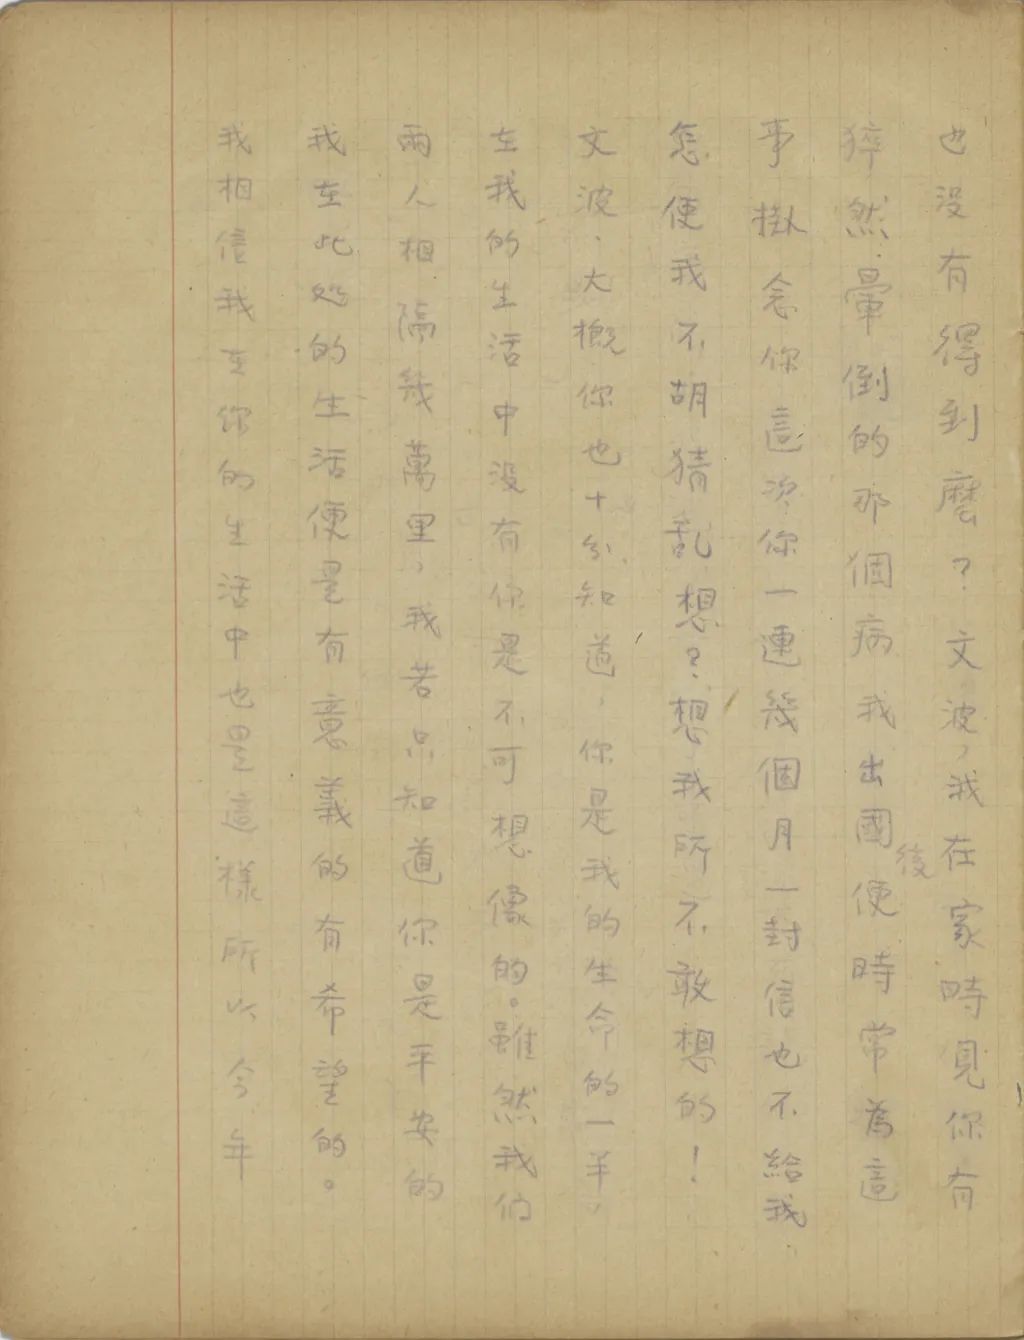 也没有得到麽？文波，我在家時見你有
猝然暈倒的那個病我出國後便時常為這
事掛念你這次你一連幾個月一封信也不給我，
怎便我不胡猜乱想？想我所不敢想的！
文波，大概你也十分知道，你是我的生命的一半，
在我的生活中没有你是不可想像的。雖然我们
兩人相隔幾萬里，我若只知道你是平安的
我在此处的生活便是有意義的有希望的。
我相信我在你的生活中也是這樣所以今年